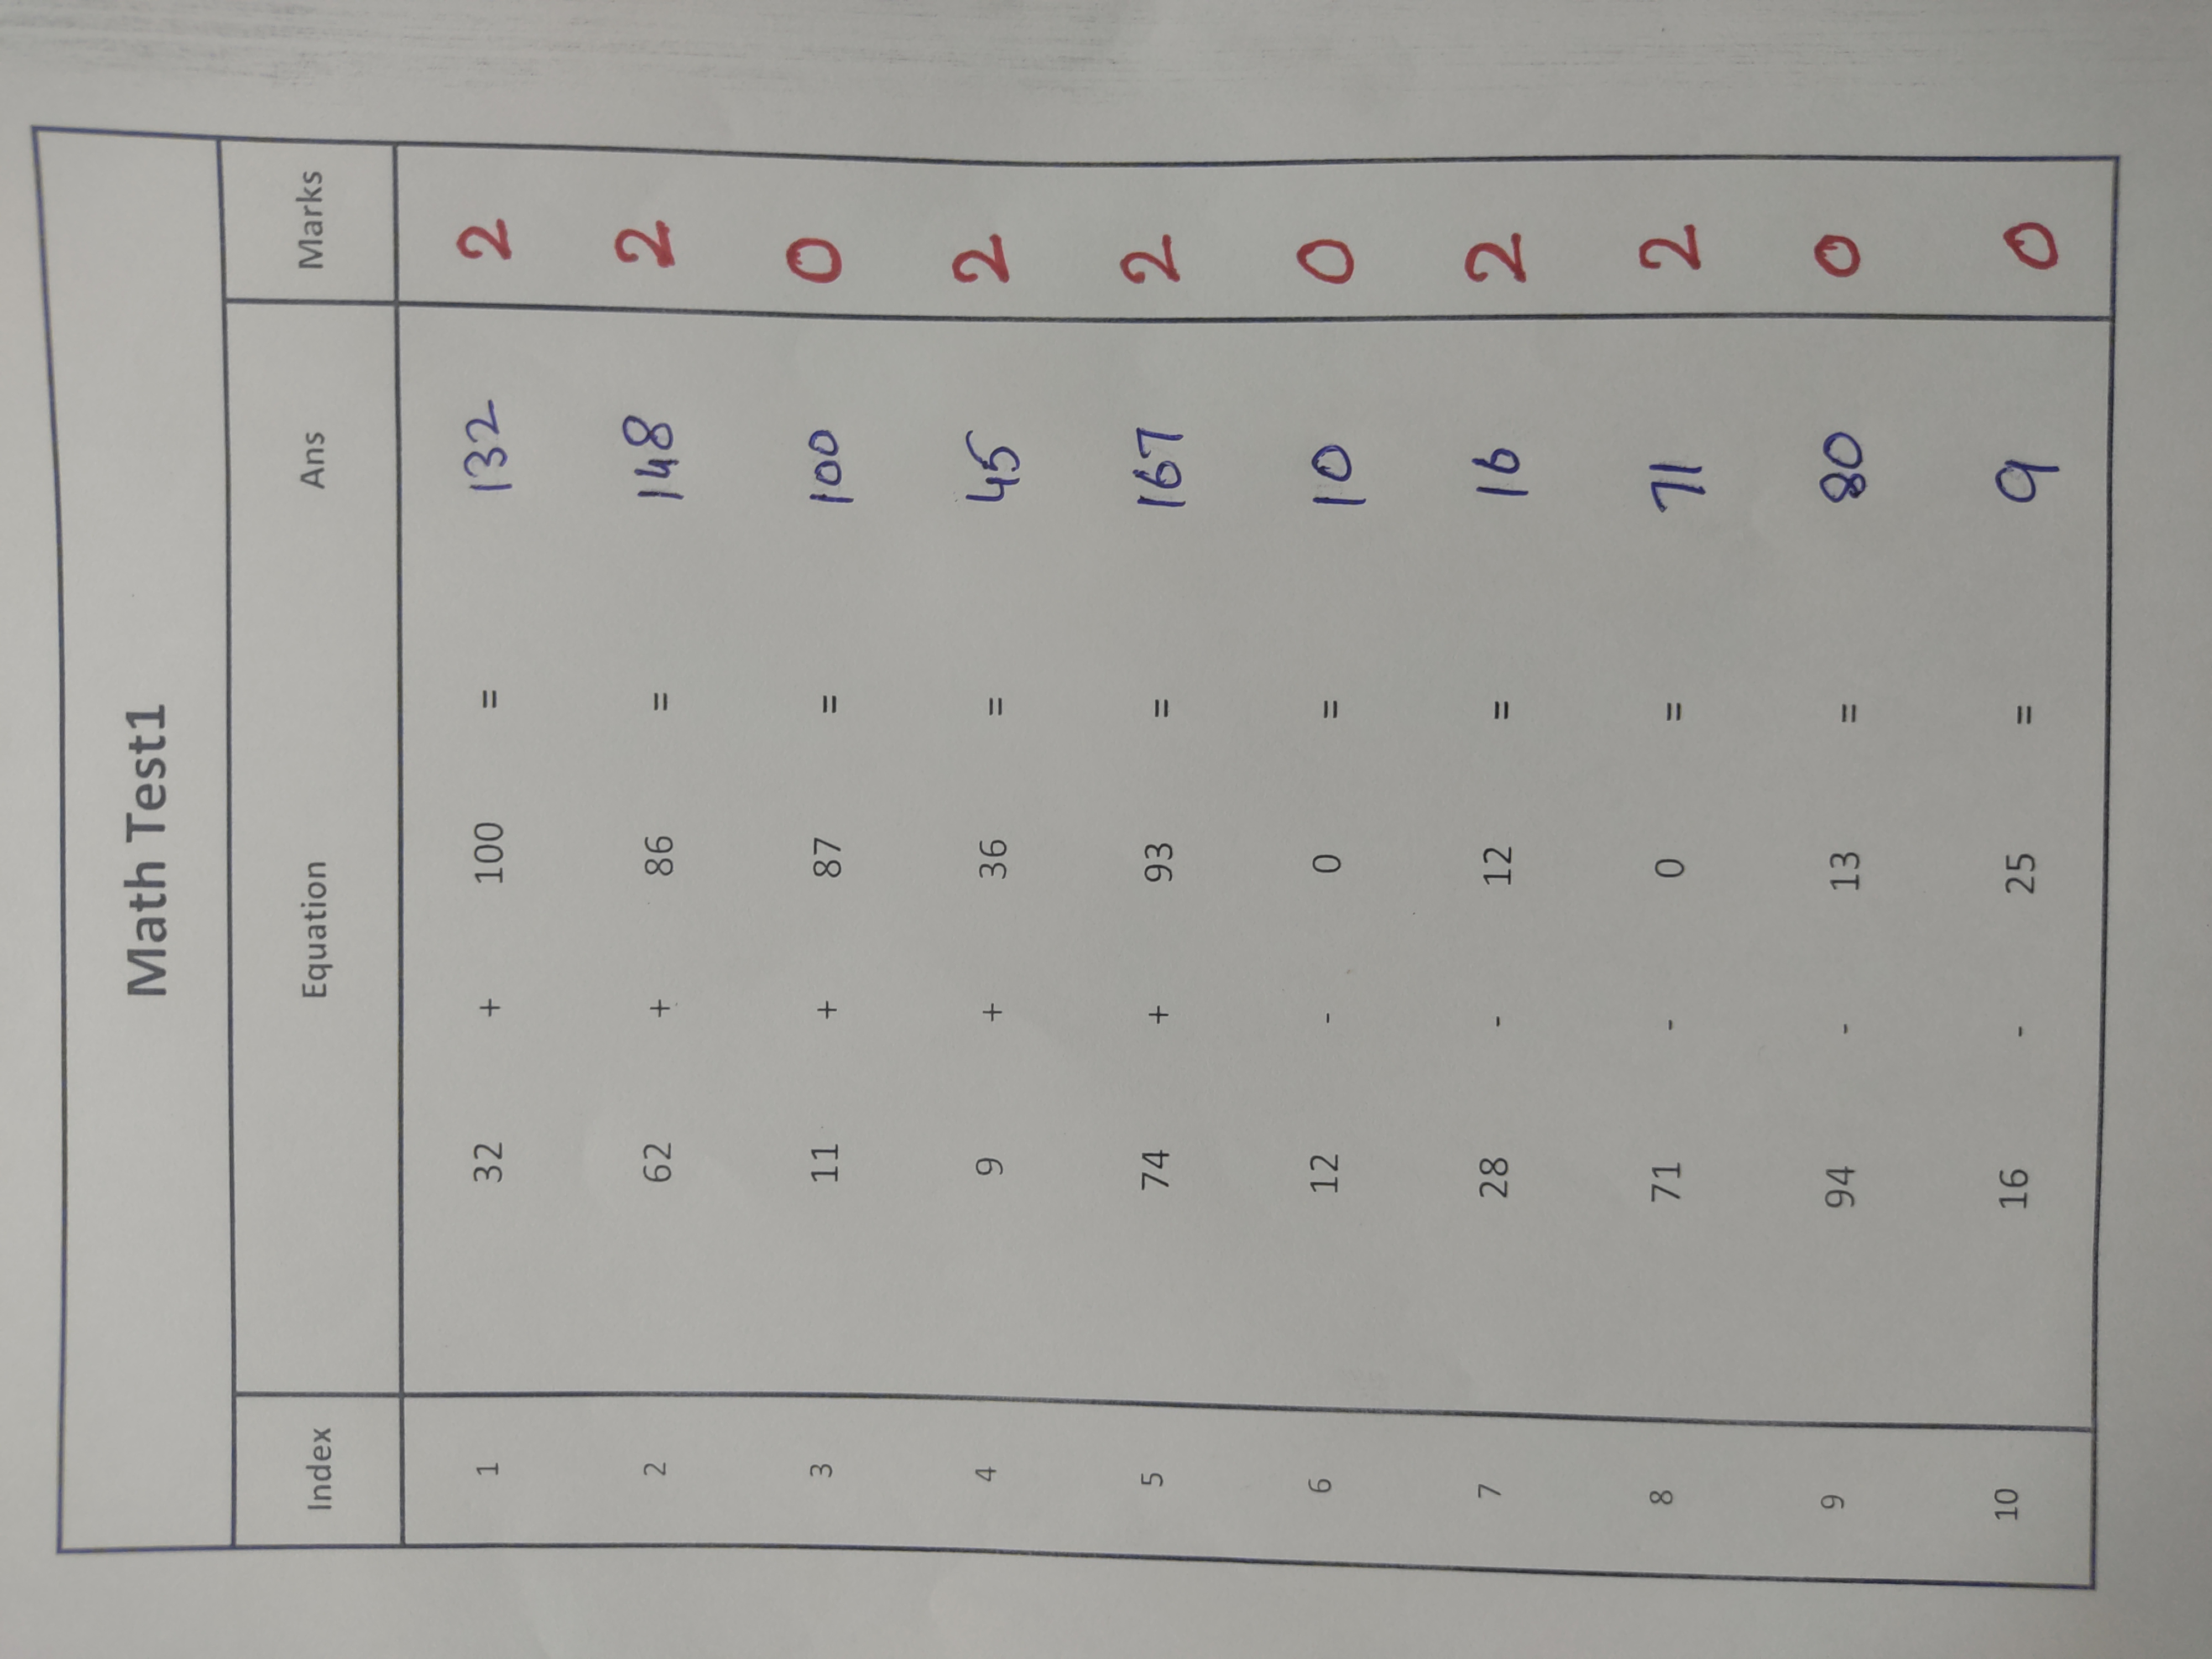 Math Test1
Index Equation Ans Marks
1 32 + 100 = 132 2
2 62 + 86 = 148 2
3 11 + 87 = 100 0
4 9 + 36 = 45 2
5 74 + 93 = 167 2
6 12 - 0 = 10 0
7 28 - 12 = 16 2
8 71 - 0 = 71 2
9 94 - 13 = 80 0
10 16 - 25 = 9 0